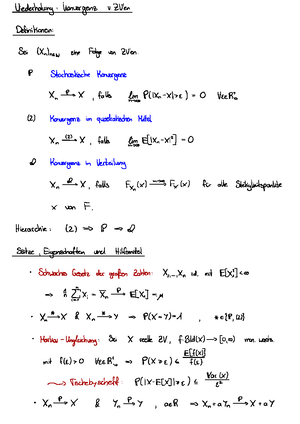 Wiederholung: Konvergenz v. ZVen
Definitionen:
Sei (Xn)n∈ℕ eine Folge von ZVen.
P Stochastische Konvergenz
Xn →P X , falls lim n→∞ P(|Xn-X|>ε) = 0 ∀ε∈ℝ+
(2) Konvergenz im quadratischen Mittel
Xn →(2) X , falls lim n→∞ E[|Xn-X|²] = 0
D Konvergenz in Verteilung
Xn →D X , falls FXn(x) →n→∞ FX(x) für alle Stetigkeitspunkte
x von F.
Hierarchie: (2) ⇒ P ⇒ D
Sätze, Eigenschaften und Hilfsmittel
• Schwaches Gesetz der großen Zahlen: X1,...,Xn iid mit E[X1²]<∞
⇒ 1/n Σ Xi = X̄n →P E[X1] = μ
• Xn →* X & Xn →* Y ⇒ P(X=Y)=1 , *∈{P,(2)}
• Markov-Ungleichung: Sei X reelle ZV, f: Bild(X) → [0,∞) mon. wachs.
mit f(ε)>0 ∀ε∈ℝ+ ⇒ P(X≥ε) ≤ E[f(X)]/f(ε)
⇝ Tschebyscheff: P(|X-E[X]|≥ε) ≤ Var(X)/ε²
• Xn →P X & Yn →P Y , a∈ℝ ⇒ Xn+aYn →P X+aY